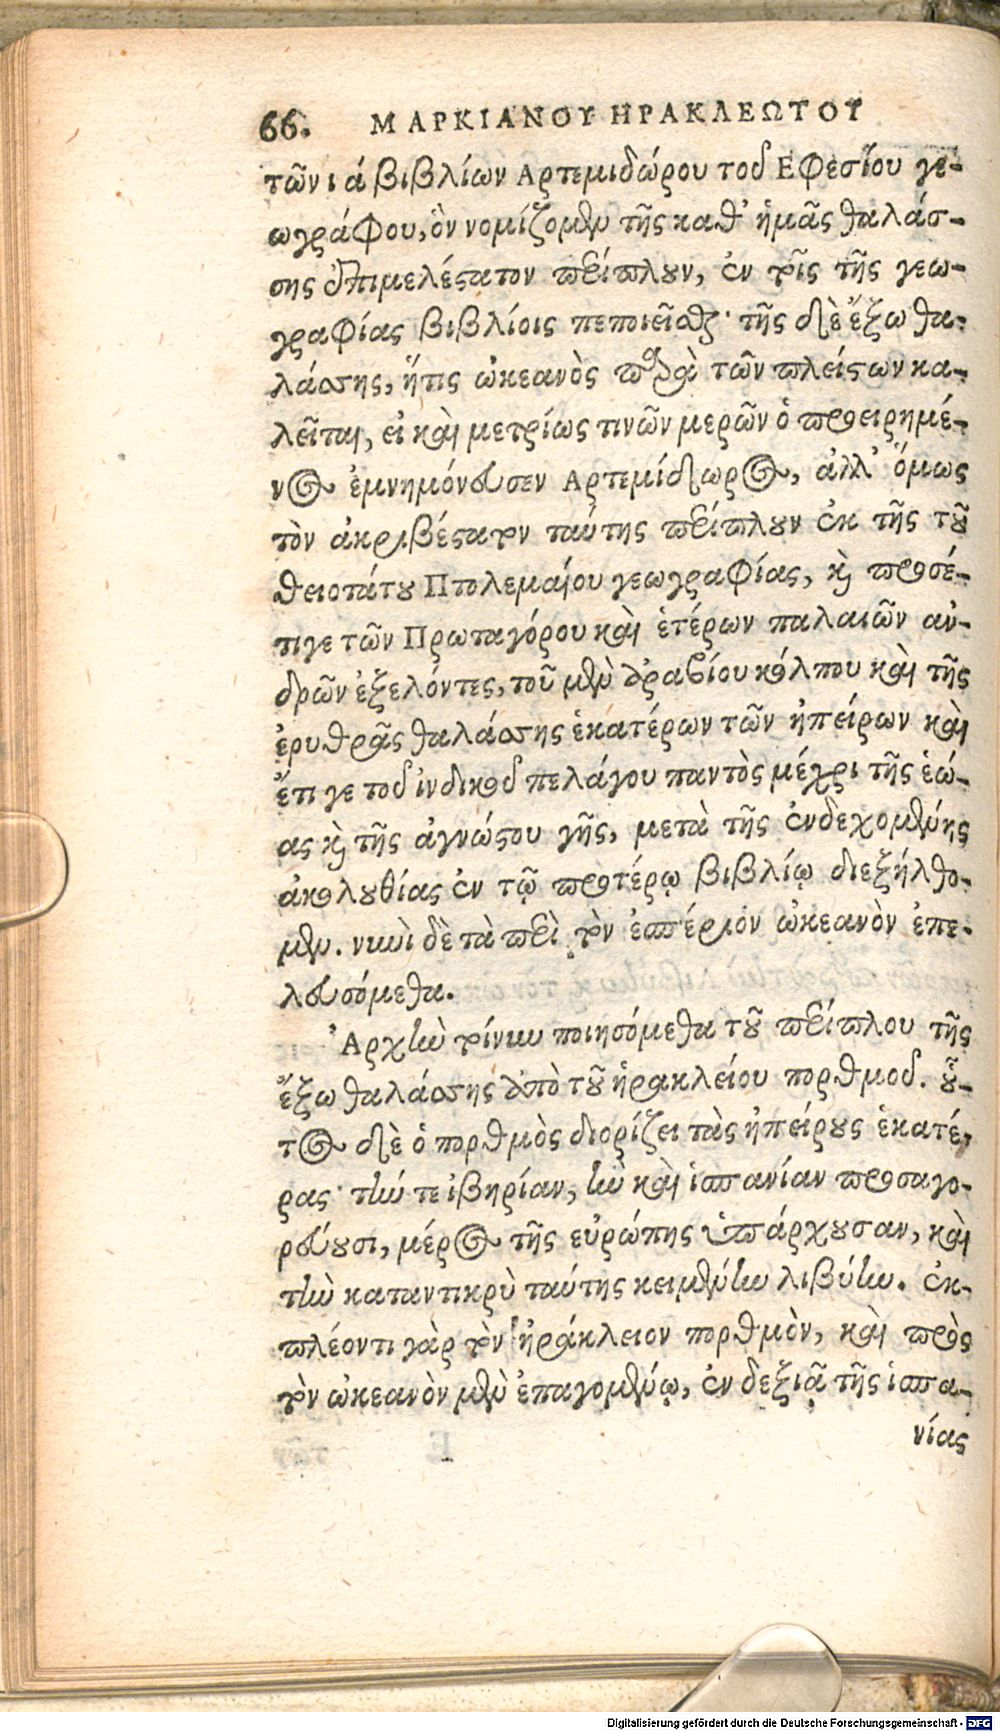 66. ΜΑΡΚΙΑΝΟΥ ΗΡΑΚΛΕΩΤΟΥ
τῶν ια βιβλίων Αρτεμιδώρου τοῦ Εφεσίου γε-
ωγράφου, ὃν νομίζομεν τῆς καθ' ἡμᾶς θαλάσ-
σης ἐπιμελέστατον περίπλουν, ἐν τοῖς τῆς γεω-
γραφίας βιβλίοις πεποιεῖσθαι· τῆς δὲ ἔξω θα-
λάσσης, ἥτις ὠκεανὸς παρὰ τῶν πλείστων κα-
λεῖται, εἰ καὶ μετρίως τινῶν μερῶν ὁ προειρημέ-
νος ἐμνημόνευσεν Αρτεμίδωρος, ἀλλ' ὅμως
τὸν ἀκριβέστατον ταύτης περίπλουν ἐκ τῆς τοῦ
θειοτάτου Πτολεμαίου γεωγραφίας, καὶ προσέ-
τιγε τῶν Πρωταγόρου καὶ ἑτέρων παλαιῶν ἀν-
δρῶν ἐξελόντες, τοῦ μὲν ἀραβίου κόλπου καὶ τῆς
ἐρυθρᾶς θαλάσσης ἑκατέρων τῶν ἠπείρων καὶ
ἔτι γε τοῦ ἰνδικοῦ πελάγου παντὸς μέχρι τῆς ἑώ-
ας καὶ τῆς ἀγνώστου γῆς, μετὰ τῆς ἐνδεχομένης
ἀκολουθίας ἐν τῷ προτέρῳ βιβλίῳ διεξήλθο-
μεν. νυνὶ δὲ τὰ περὶ τὸν ἑσπέριον ὠκεανὸν ἐπε-
λευσόμεθα.
Ἀρχὴν τοίνυν ποιησόμεθα τοῦ περίπλου τῆς
ἔξω θαλάσσης ἀπὸ τοῦ ἡρακλείου πορθμοῦ. οὗ-
τος δὲ ὁ πορθμὸς διορίζει τὰς ἠπείρους ἑκατέ-
ρας· τήν τε ἰβηρίαν, ἣν καὶ ἱσπανίαν προσαγο-
ρεύουσι, μέρος τῆς εὐρώπης ὑπάρχουσαν, καὶ
τὴν καταντικρὺ ταύτης κειμένην λιβύην. ἐκ-
πλέοντι γὰρ τὸν ἡράκλειον πορθμὸν, καὶ πρὸς
τὸν ὠκεανὸν μὲν ἐπαγομένῳ, ἐν δεξιᾷ τῆς ἱσπα-
νίας
Digitalisierung gefördert durch die Deutsche Forschungsgemeinschaft - DFG